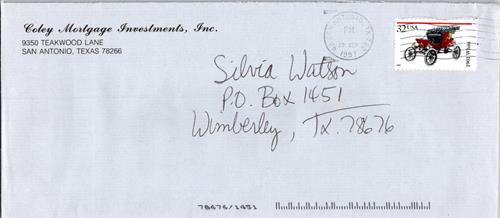 Coley Mortgage Investments, Inc.
9350 TEAKWOOD LANE
SAN ANTONIO, TEXAS 78266
PM
1997
32 USA
Silvia Watson
P.O. Box 1451
Wimberley, Tx. 78676
78676/1451